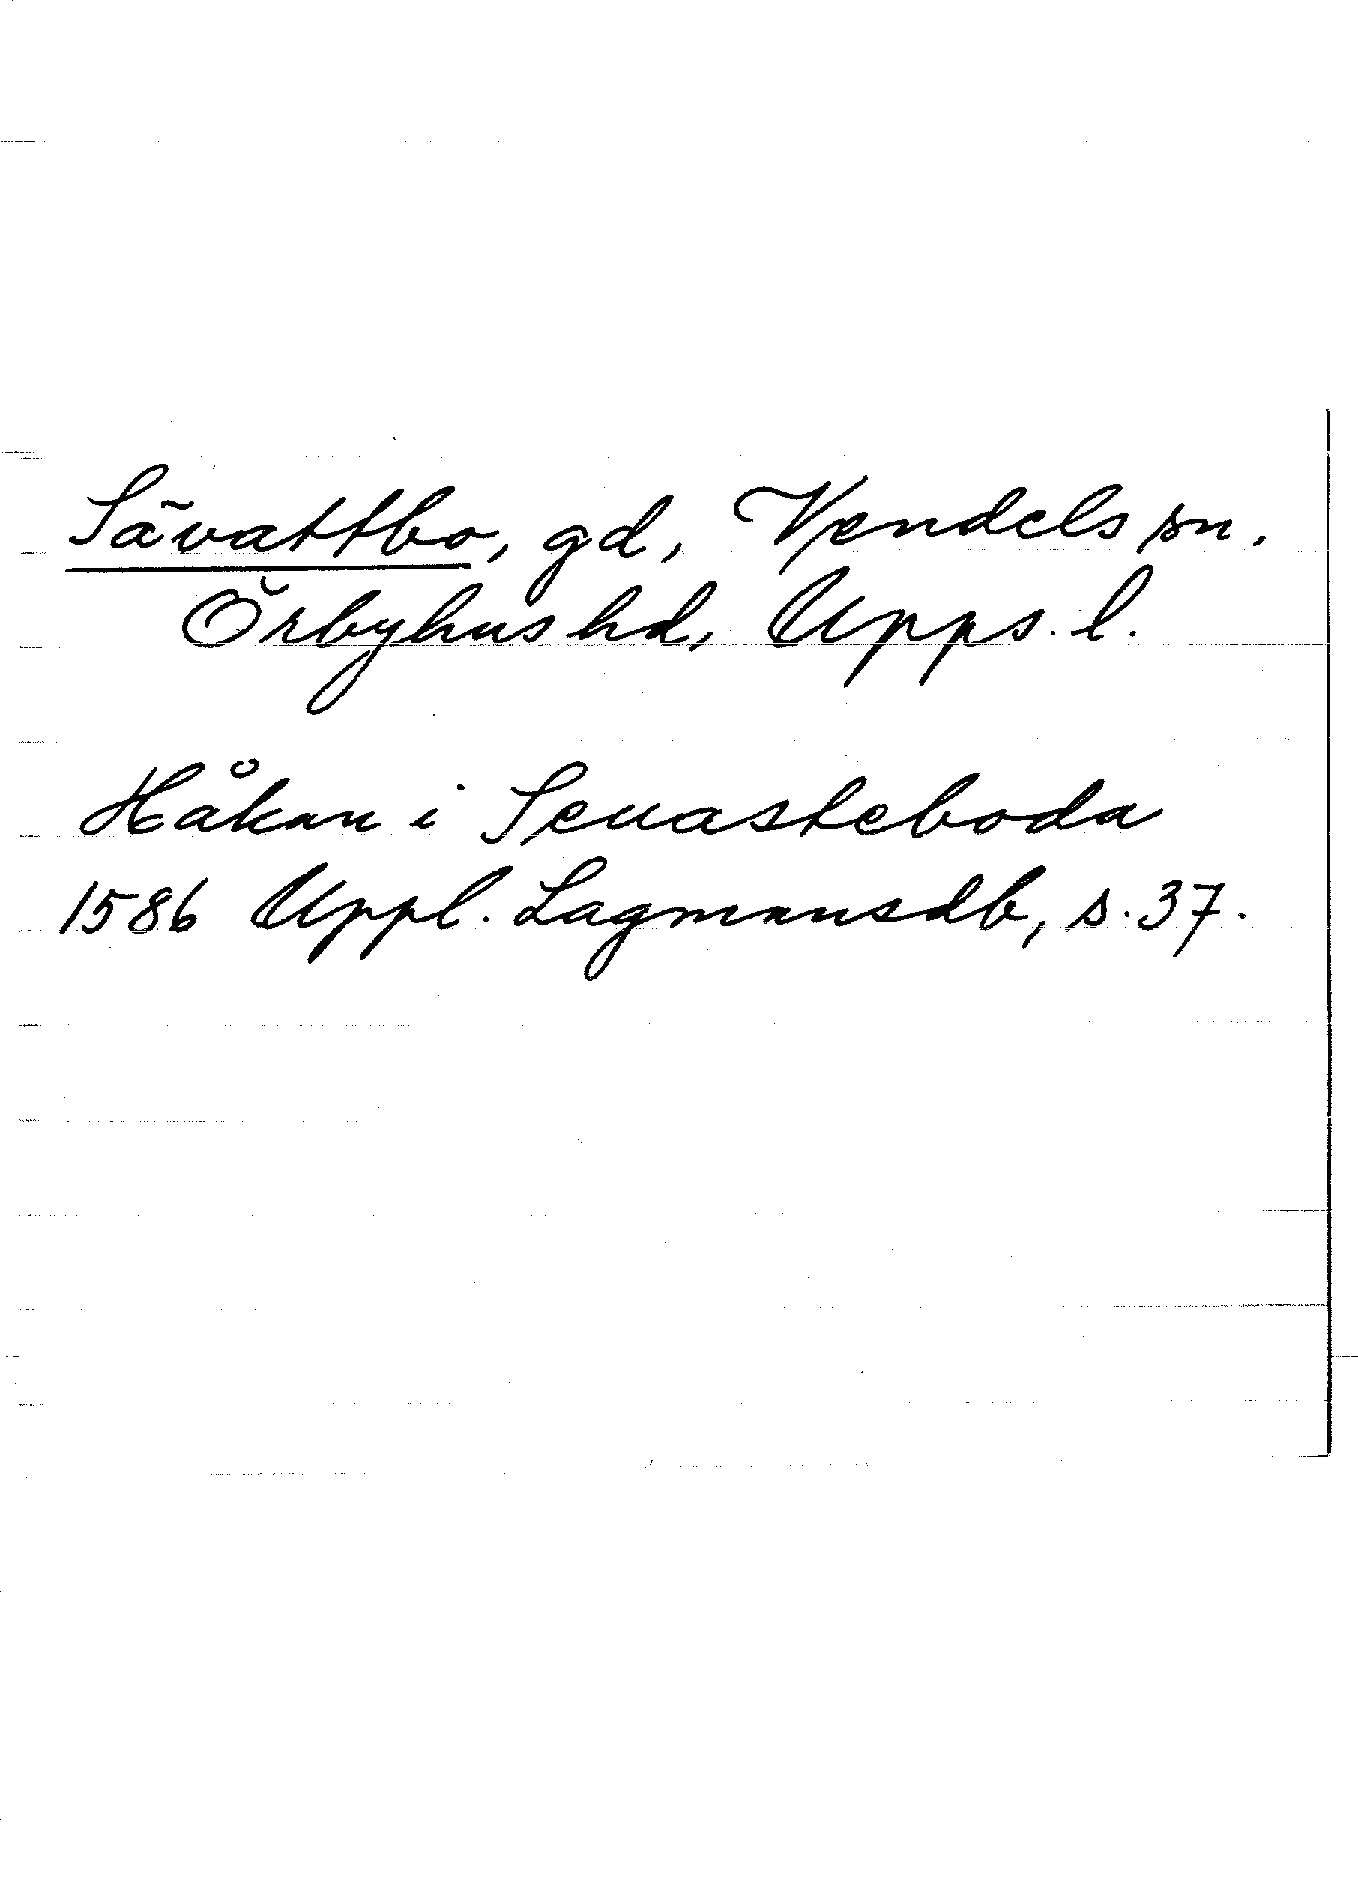 Sävattbo, gd, Vendels sn.
Örbyhus hd, Upps. l.
Håkan i Seuasteboda
1586 Uppl. Lagmansdb, s. 37.